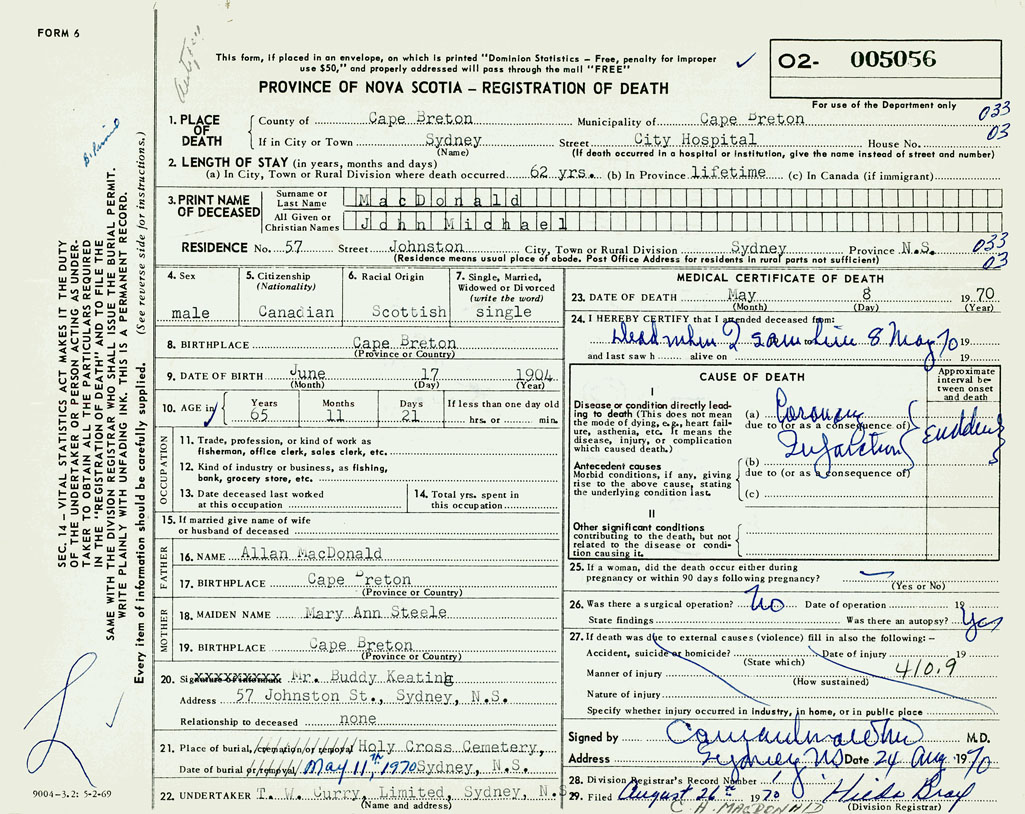 FORM 6
This form, if placed in an envelope, on which is printed "Dominion Statistics – Free, penalty for improper
use $50," and properly addressed will pass through the mail "FREE"
PROVINCE OF NOVA SCOTIA – REGISTRATION OF DEATH
O2- 005056
For use of the Department only
033
03
1. PLACE OF DEATH
County of Cape Breton Municipality of Cape Breton
If in City or Town Sydney Street City Hospital House No.
(Name) (If death occurred in a hospital or institution, give the name instead of street and number)
2. LENGTH OF STAY (in years, months and days)
(a) In City, Town or Rural Division where death occurred 62 yrs. (b) In Province lifetime (c) In Canada (if immigrant)
3. PRINT NAME OF DECEASED
Surname or Last Name MacDonald
All Given or Christian Names John Michael
RESIDENCE No. 57 Street Johnston City, Town or Rural Division Sydney Province N.S.
(Residence means usual place of abode. Post Office Address for residents in rural parts not sufficient)
033
03
4. Sex
male
5. Citizenship
(Nationality)
Canadian
6. Racial Origin
Scottish
7. Single, Married,
Widowed or Divorced
(write the word)
single
8. BIRTHPLACE Cape Breton
(Province or Country)
9. DATE OF BIRTH June 17 1904
(Month) (Day) (Year)
10. AGE in Years Months Days If less than one day old
65 11 21 hrs. or min.
OCCUPATION
11. Trade, profession, or kind of work as
fisherman, office clerk, sales clerk, etc.
12. Kind of industry or business, as fishing,
bank, grocery store, etc.
13. Date deceased last worked
at this occupation
14. Total yrs. spent in
this occupation
15. If married give name of wife
or husband of deceased
FATHER
16. NAME Allan MacDonald
17. BIRTHPLACE Cape Breton
(Province or Country)
MOTHER
18. MAIDEN NAME Mary Ann Steele
19. BIRTHPLACE Cape Breton
(Province or Country)
20. Signature of informant Mr. Buddy Keating
Address 57 Johnston St., Sydney, N.S.
Relationship to deceased none
21. Place of burial, cremation or removal Holy Cross Cemetery,
Date of burial or removal May 11, TH 1970 Sydney, N.S.
22. UNDERTAKER T. W. Curry, Limited, Sydney, N.S.
(Name and address)
MEDICAL CERTIFICATE OF DEATH
23. DATE OF DEATH May 8 1970
(Month) (Day) (Year)
24. I HEREBY CERTIFY that I attended deceased from:
Dead when I saw him 8 May 70 19
and last saw h alive on 19
CAUSE OF DEATH
Approximate
interval be-
tween onset
and death
I
Disease or condition directly lead-
ing to death (This does not mean
the mode of dying, e.g., heart fail-
ure, asthenia, etc. It means the
disease, injury, or complication
which caused death.)
(a) Coronary
due to (or as a consequence of)
Infarction
sudden
Antecedent causes
Morbid conditions, if any, giving
rise to the above cause, stating
the underlying condition last.
(b)
due to (or as a consequence of)
(c)
II
Other significant conditions
contributing to the death, but not
related to the disease or condi-
tion causing it.
25. If a woman, did the death occur either during
pregnancy or within 90 days following pregnancy?
(Yes or No)
26. Was there a surgical operation? No Date of operation 19
State findings Was there an autopsy? Yes
27. If death was due to external causes (violence) fill in also the following:–
Accident, suicide or homicide? Date of injury 19
(State which)
Manner of injury 410.9
(How sustained)
Nature of injury
Specify whether injury occurred in industry, in home, or in public place
Signed by M.D.
Address Sydney NS Date 24 Aug. 1970
28. Division Registrar's Record Number
29. Filed August 26th 1970 Hilda Bray
(Division Registrar)
C. H. MACDONALD
SEC. 14 – VITAL STATISTICS ACT MAKES IT THE DUTY
OF THE UNDERTAKER OR PERSON ACTING AS UNDER-
TAKER TO OBTAIN ALL THE PARTICULARS REQUIRED
IN THE "REGISTRATION OF DEATH" AND TO FILE THE
SAME WITH THE DIVISION REGISTRAR WHO SHALL ISSUE THE BURIAL PERMIT.
WRITE PLAINLY WITH UNFADING INK. THIS IS A PERMANENT RECORD.
Every item of information should be carefully supplied. (See reverse side for instructions.)
9004-3.2: 5-2-69